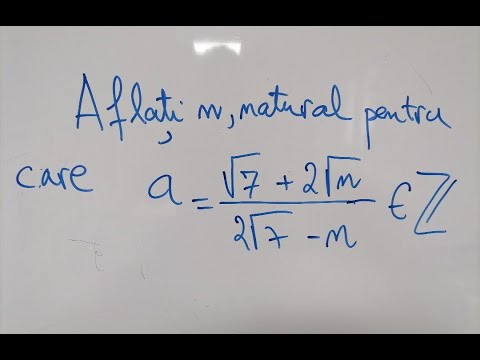 Aflați n, natural pentru
care a = (√7 + 2√n) / (2√7 - n) ∈ ℤ